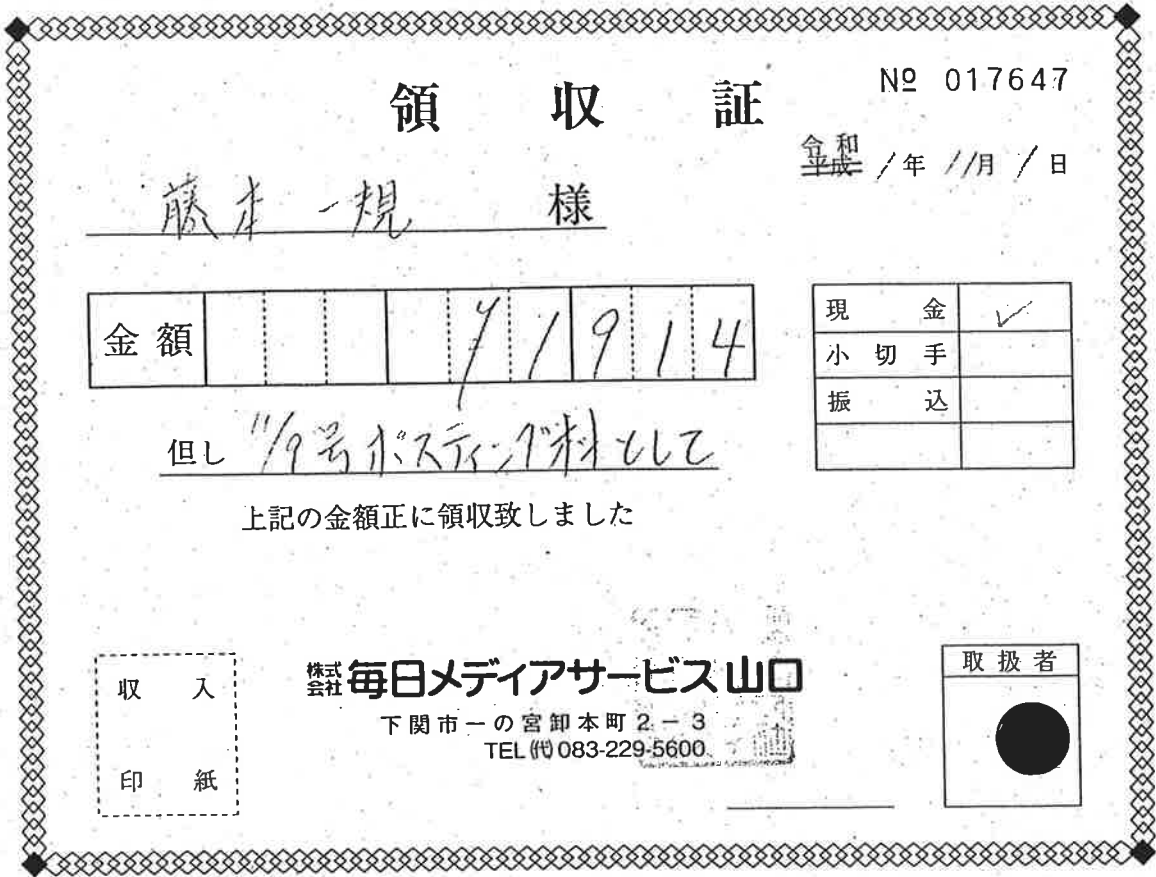 領 収 証
№ 017647
令和
平成 1年 11月 1日
藤本一規 様
金額 ¥1914
現 金 ✓
小 切 手
振 込
但し 11/9号ポスティング料として
上記の金額正に領収致しました
収 入
印 紙
株式会社 毎日メディアサービス山口
下関市一の宮卸本町2-3
TEL(代)083-229-5600
取扱者